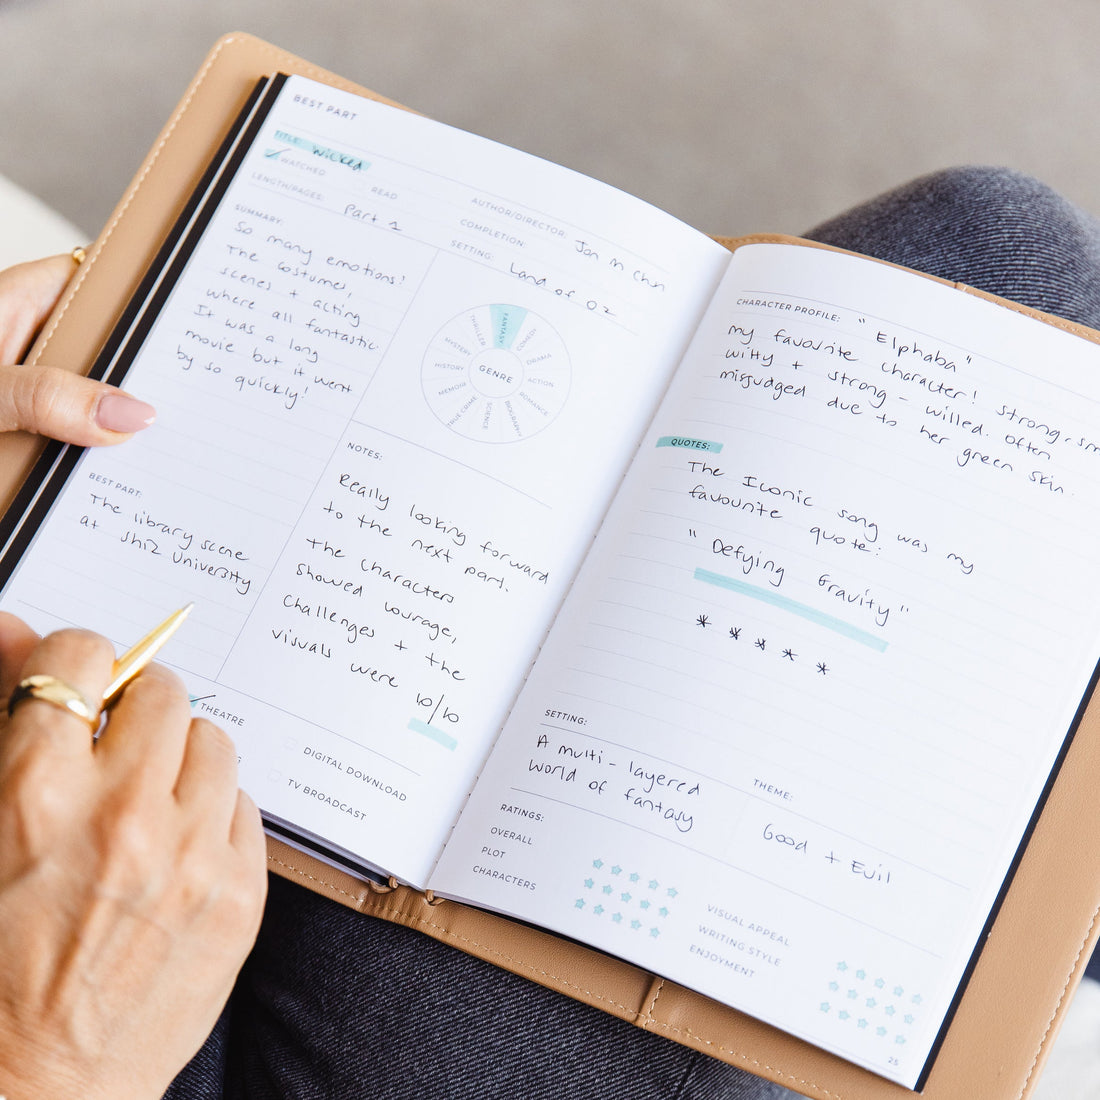 BEST PART
TITLE: Wicked
✓ WATCHED READ
LENGTH/PAGES: Part 1
AUTHOR/DIRECTOR: Jon M Chu
COMPLETION:
SETTING: Land of Oz
SUMMARY:
So many emotions!
The costumes,
scenes + acting
where all fantastic.
It was a long
movie but it went
by so quickly!
GENRE
FANTASY
COMEDY
DRAMA
ACTION
ROMANCE
BIOGRAPHY
SCIENCE
TRUE CRIME
MEMOIR
HISTORY
MYSTERY
THRILLER
BEST PART:
The library scene
at Shiz University
NOTES:
Really looking forward
to the next part.
The characters
showed courage,
challenges + the
visuals were 10/10
✓ THEATRE
DIGITAL DOWNLOAD
TV BROADCAST
CHARACTER PROFILE: "Elphaba"
my favourite character! Strong, sm
witty + strong-willed. Often
misjudged due to her green skin.
QUOTES:
The Iconic song was my
favourite quote:
"Defying Gravity"
* * * * *
SETTING:
A multi-layered
world of fantasy
THEME:
Good + Evil
RATINGS:
OVERALL
PLOT
CHARACTERS
VISUAL APPEAL
WRITING STYLE
ENJOYMENT
25